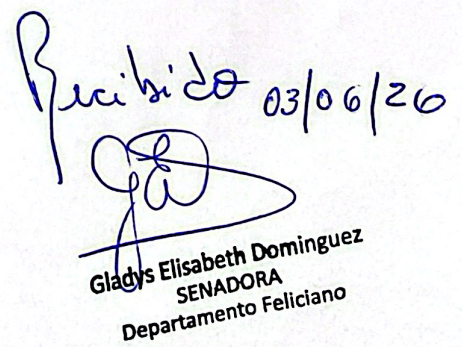 Recibido 03/06/26
Gladys Elisabeth Dominguez
SENADORA
Departamento Feliciano